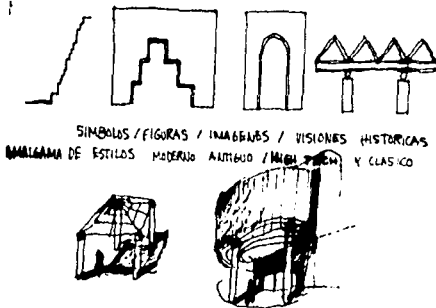 SIMBOLOS / FIGURAS / IMAGENES / VISIONES HISTORICAS
AMALGAMA DE ESTILOS MODERNO ANTIGUO / HIGH TECH Y CLASICO